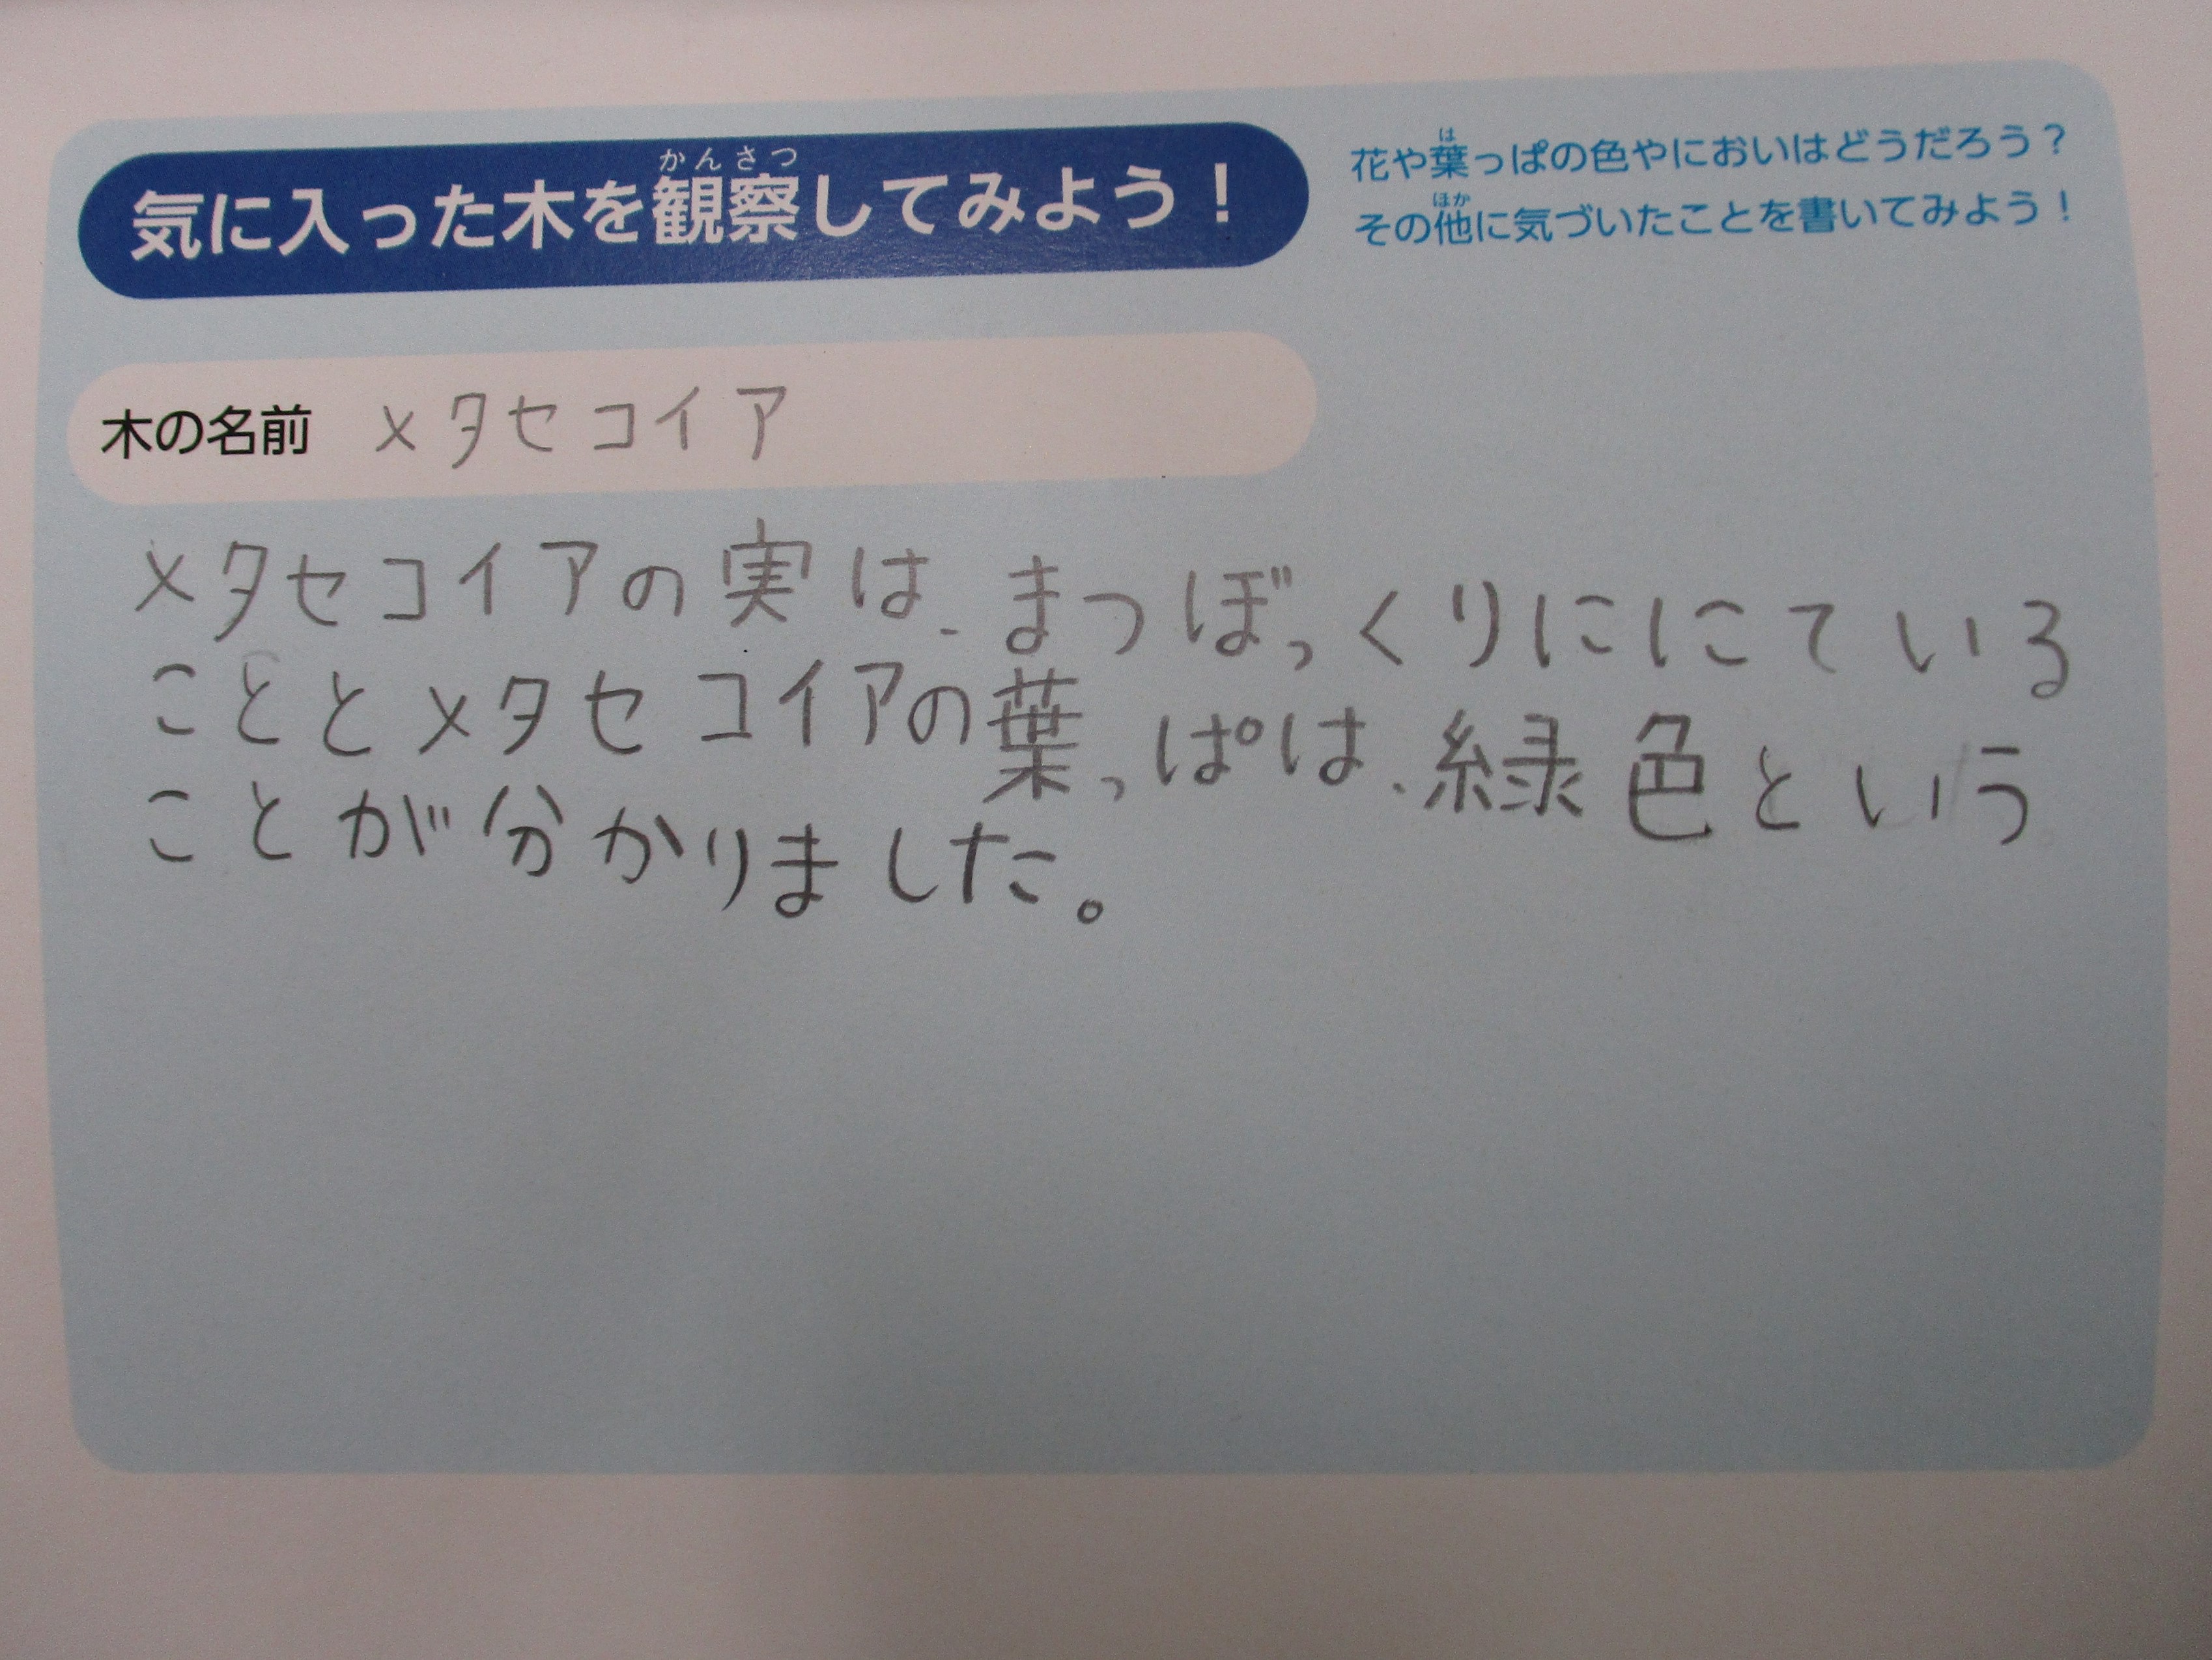 気に入った木を観察してみよう！
かんさつ
花や葉っぱの色やにおいはどうだろう？
は
その他に気づいたことを書いてみよう！
ほか
木の名前 メタセコイア
メタセコイアの実は、まつぼっくりににている
こととメタセコイアの葉っぱは、緑色という
ことが分かりました。